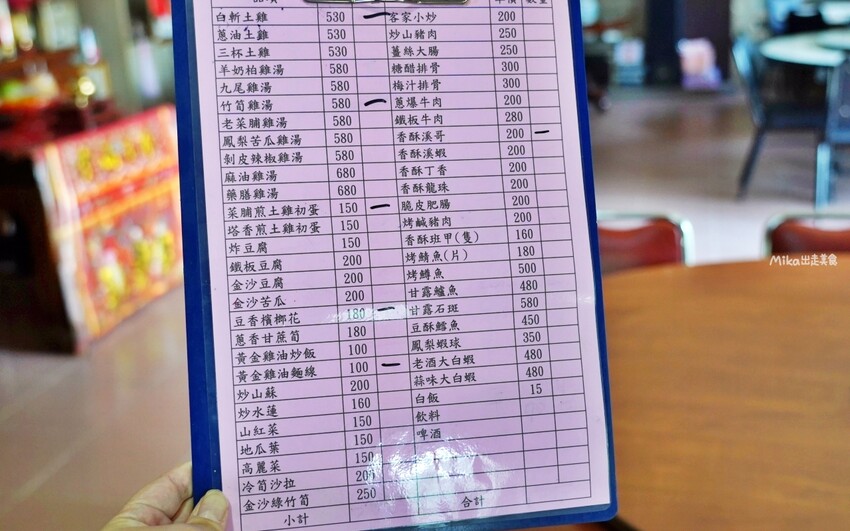 單價 數量
白斬土雞 530 客家小炒 200
蔥油土雞 530 炒山豬肉 250
三杯土雞 530 薑絲大腸 250
羊奶柏雞湯 580 糖醋排骨 300
九尾雞湯 580 梅汁排骨 300
竹筍雞湯 580 蔥爆牛肉 200
老菜脯雞湯 580 鐵板牛肉 280
鳳梨苦瓜雞湯 580 香酥溪哥 200
剝皮辣椒雞湯 580 香酥溪蝦 200
麻油雞湯 680 香酥丁香 200
藥膳雞湯 680 香酥龍珠 200
菜脯煎土雞初蛋 150 脆皮肥腸 200
塔香煎土雞初蛋 150 烤鹹豬肉 200
炸豆腐 150 香酥班甲(隻) 160
鐵板豆腐 200 烤鯖魚(片) 180
金沙豆腐 200 烤鱒魚 500
金沙苦瓜 200 甘露鱸魚 480
豆香檳榔花 180 甘露石斑 580
蔥香甘蔗筍 180 豆酥鱈魚 450
黃金雞油炒飯 100 鳳梨蝦球 350
黃金雞油麵線 100 老酒大白蝦 480
炒山蘇 200 蒜味大白蝦 480
炒水蓮 160 白飯 15
山紅菜 150 飲料
地瓜葉 150 啤酒
高麗菜 150
冷筍沙拉 200
金沙綠竹筍 250
小計 合計
Mika出走美食